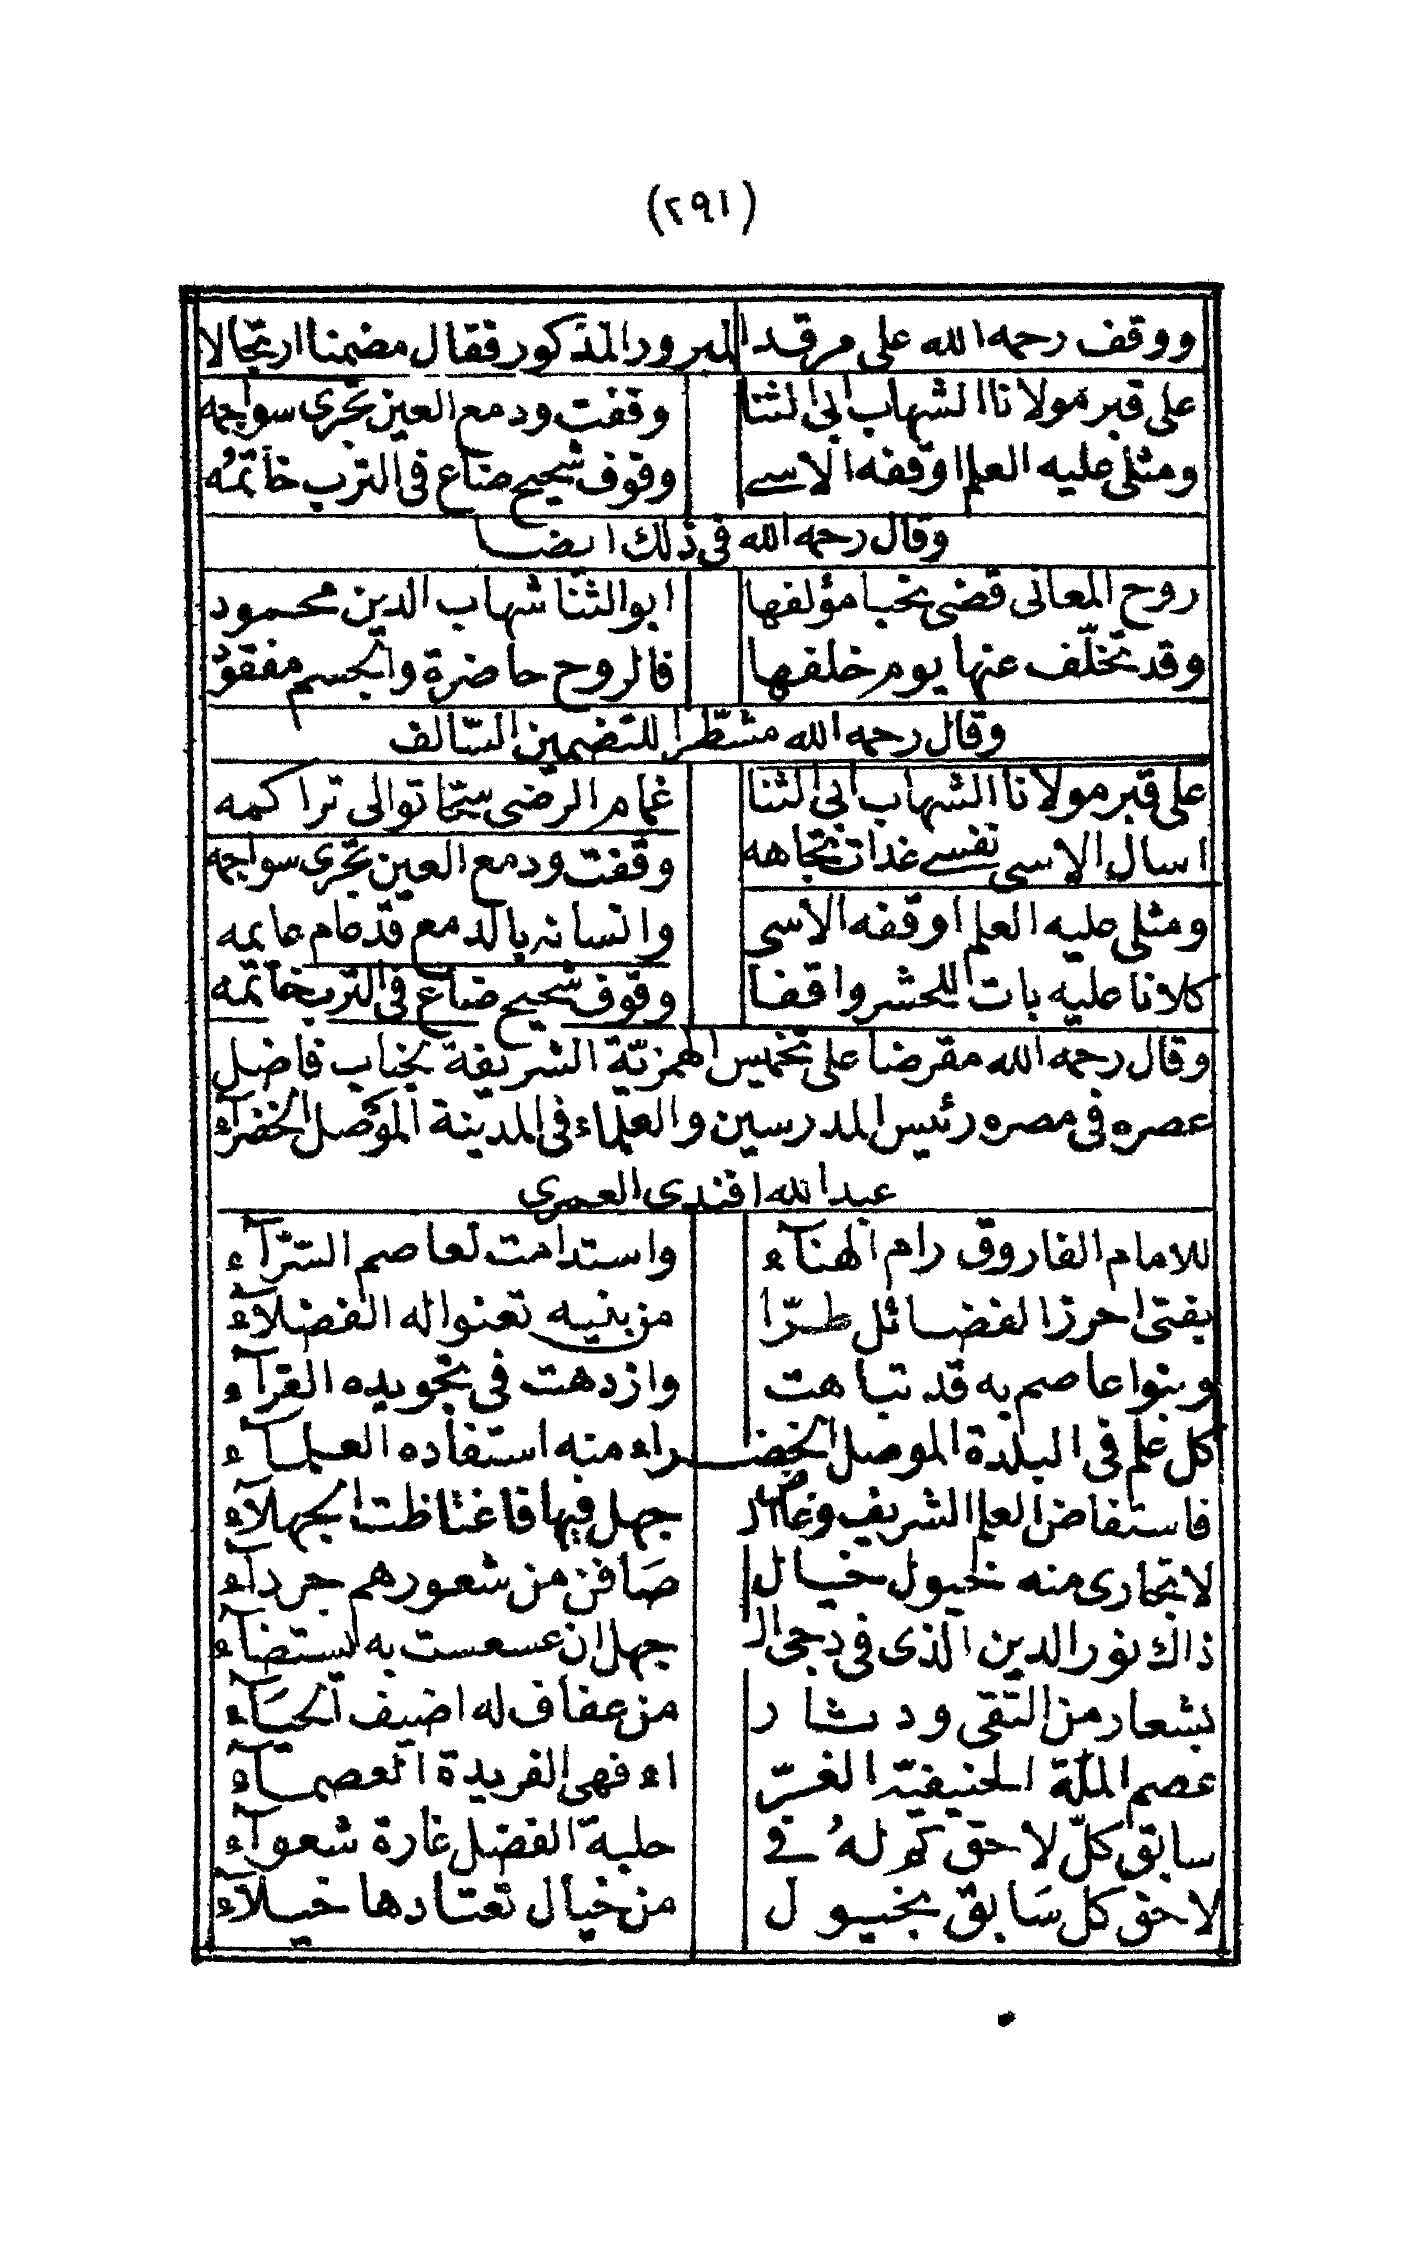 (٢٩١)
ووقف رحمه الله على مرقد المبرور المذكور فقال مضمنا ارتجالا
على قبر مولانا الشهاب ابى الثنا وقفت ودمع العين تجرى سواجمه
ومثلى عليه العلم اوقفه الاسى وقوف شحيح ضاع فى الترب خاتمه
وقال رحمه الله فى ذلك ايضا
روح المعانى قضى نحبا مؤلفها ابو الثنا شهاب الدين محمود
وقد تخلّف عنها يوم خلفها فالروح حاضرة والجسم مفقود
وقال رحمه الله مشطّرا للتضمين السالف
على قبر مولانا الشهاب ابى الثنا غمام الرضى سحّا توالى تراكمه
اسال الاسى نفسى غداة تجاهه وقفت ودمع العين تجرى سواجمه
ومثلى عليه العلم اوقفه الاسى وانسانه بالدمع قد عام عايمه
كلانا عليه بات للحشر واقفا وقوف شحيح ضاع فى الترب خاتمه
وقال رحمه الله مقرضا على تخميس الهمزيّة الشريفة بجناب فاضل
عصره فى مصره رئيس المدرسين والعلماء فى المدينة الموصل الخضرآء
عبد الله افندى العمرى
للامام الفاروق رام الهنآء واستدامت لعاصم السرّآء
بفتى احرز الفضائل طرّا من بنيه تعنو اله الفضلآء
وبنو اعاصم به قد تباهت وازدهت فى تجويده القرآء
كل علم فى البلدة الموصل الخضراء منه استفاده العلمآء
فاستفاض العلم الشريف وغاض ال جهل فيها فاغتاظت الجهلآء
لا تجارى منه خيول خيال صَافن من شعورهم جردآء
ذاك نور الدين الذى فى دجى ال جهل ان عسعست به يستضآء
بشعار من التقى ودثار من عفاف له اضيف الحيَآء
عصم الملّة الحنيفيّة الغرّ اء فهى الفريدة العصمآء
سابق كلّ لاحق كم لهُ فى حلبة الفضل غارة شعوآء
لاحق كل سَابق بخيول من خيال تعتادها خيلآء